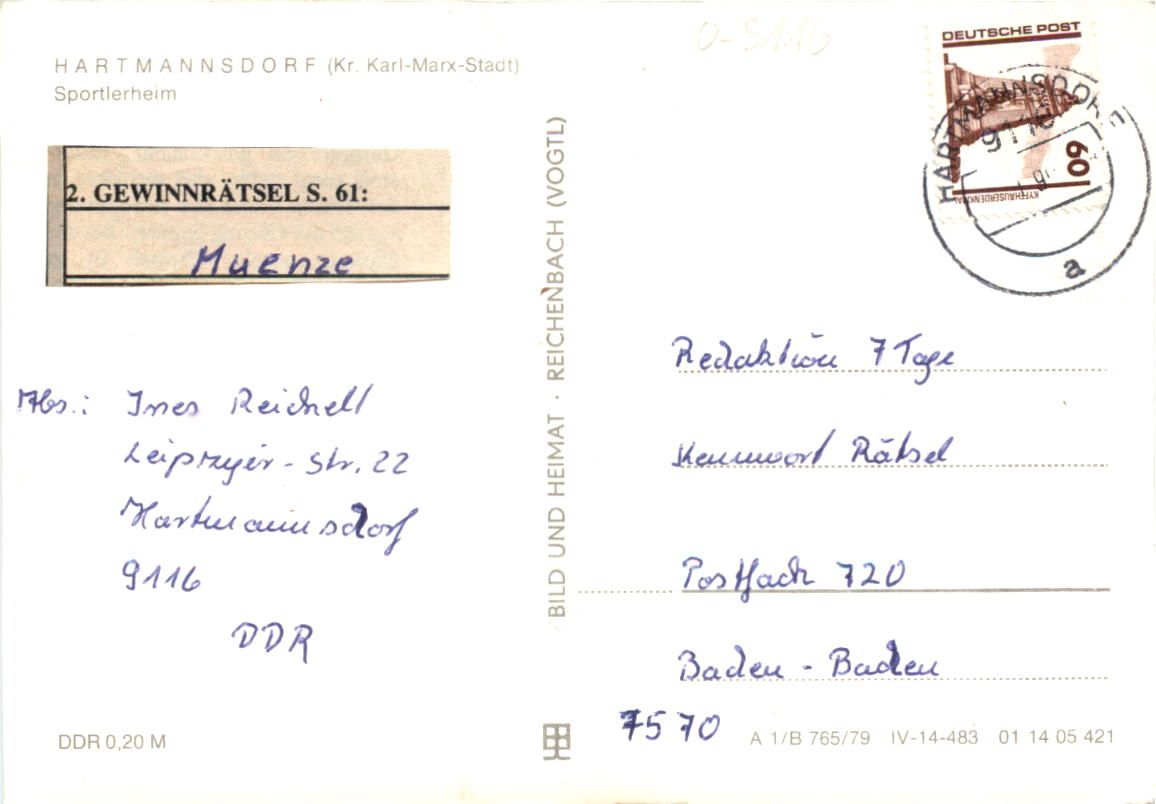 O-9116
HARTMANNSDORF (Kr. Karl-Marx-Stadt)
Sportlerheim
2. GEWINNRÄTSEL S. 61:
Muenze
Abs.: Ines Reichelt
Leipziger-Str. 22
Hartmannsdorf
9116
DDR
DDR 0,20 M
BILD UND HEIMAT · REICHENBACH (VOGTL)
DEUTSCHE POST
60
KYFFHÄUSERDENKMAL
HARTMANNSDORF
9116
a
Redaktion 7 Tage
Kennwort Rätsel
Postfach 720
Baden - Baden
7570
A 1/B 765/79 IV-14-483 01 14 05 421